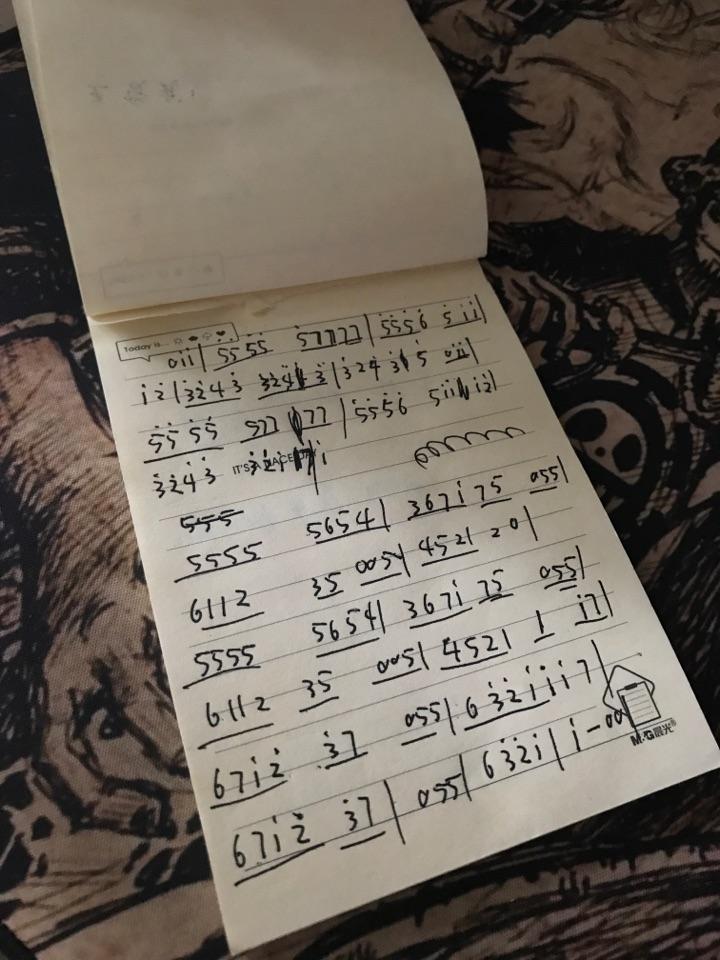 Today is...
0i̇i̇ | 5̇5̇ 5̇5̇ 5̇7777 | 5̇5̇5̇6̇ 5̇ i̇i̇ |
i̇ 2̇ | 3̇2̇4̇3̇ 3̇2̇4̇ 3̇ | 3̇2̇4̇ 3̇ 5̇ 0i̇i̇ |
5̇5̇ 5̇5̇ 5̇77 77 | 5̇5̇5̇6̇ 5̇i̇i̇ i̇2̇ |
3̇2̇4̇3̇ 3̇2̇i̇ i̇
IT'S A
555
5555 5654 | 367i̇ 75 055 |
6112 35 005 | 4521 20 |
5555 5654 | 367i̇ 75 055 |
6112 35 005 | 4521 1 i̇7 |
67i̇2̇ 3̇7 055 | 63̇2̇i̇i̇i̇7 |
67i̇2̇ 3̇7 | 055 | 63̇2̇i̇ | i̇-00
M&G晨光®